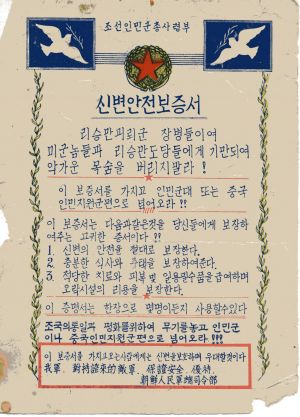 조선인민군총사령부
신변안전보증서
리승만괴뢰군 장병들이여
미군놈들과 리승만도당들에게 기만되여
악가운 목숨을 버리지말라!
이 보증서를 가지고 인민군대 또는 중국
인민지원군편으로 넘어오라!!
이 보증서는 다음과같은것을 당신들에게 보장하
여주는 고귀한 증서이다!!
1. 신변의 안전을 절대로 보장한다.
2. 충분한 식사와 주태를 보장하여준다.
3. 적당한 치료와 피복및 일용필수품을 급여하며
오락시설의 리용을 보장한다.
이 증명서는 한장으로 몇명이든지 사용할수있다
조국의통일과 평화를위하여 무기를놓고 인민군
이나 중국인민지원군편으로 넘어오라!!!
이 보증서를 가지고오는사람에게는 신변을보호하며 우대할것이다
我軍, 對持證來的敵軍, 保證安全, 優待.
朝鮮人民軍總司令部